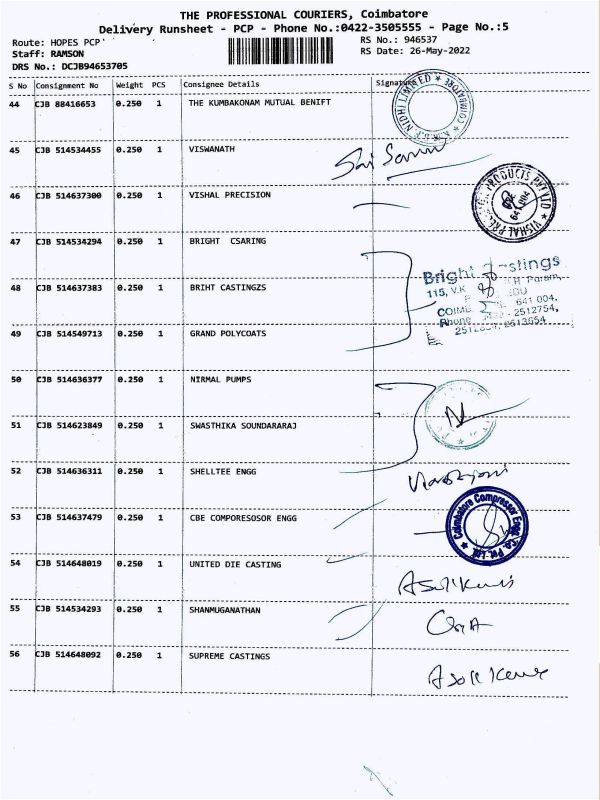 THE PROFESSIONAL COURIERS, Coimbatore
Delivery Runsheet - PCP - Phone No.:0422-3505555 - Page No.:5
Route: HOPES PCP
RS No.: 946537
Staff: RAMSON
RS Date: 26-May-2022
DRS No.: DCJB94653705
S No Consignment No Weight PCS Consignee Details Signature
44 CJB 88416653 0.250 1 THE KUMBAKONAM MUTUAL BENIFT
NIDHI LIMITED
45 CJB 514534455 0.250 1 VISWANATH
46 CJB 514637300 0.250 1 VISHAL PRECISION
PRODUCTS PVT LTD
VISHAL
641 004
47 CJB 514534294 0.250 1 BRIGHT CSARING
Bright
115, V.K
641 004.
Phone 2512754,
2513654
48 CJB 514637383 0.250 1 BRIHT CASTINGZS
49 CJB 514549713 0.250 1 GRAND POLYCOATS
50 CJB 514636377 0.250 1 NIRMAL PUMPS
51 CJB 514623849 0.250 1 SWASTHIKA SOUNDARARAJ
52 CJB 514636311 0.250 1 SHELLTEE ENGG
53 CJB 514637479 0.250 1 CBE COMPORESOSOR ENGG
Coimbatore Compressor Engg. Co. Pvt. Ltd.
54 CJB 514648019 0.250 1 UNITED DIE CASTING
55 CJB 514534293 0.250 1 SHANMUGANATHAN
56 CJB 514648092 0.250 1 SUPREME CASTINGS